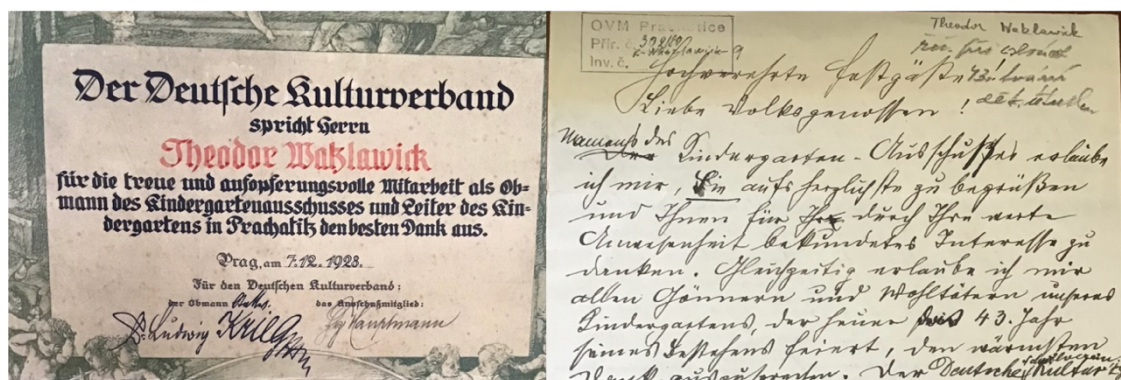 Der Deutsche Kulturverband
spricht Herrn
Theodor Watzlawick
für die treue und aufopferungsvolle Mitarbeit als Ob=
mann des Kindergartenausschusses und Leiter des Kin=
dergartens in Prachatitz den besten Dank aus.
Prag, am 7.12. 1928.
Für den Deutschen Kulturverband:
der Obmann
das Ausschußmitglied:
Dr. Ludwig
Hauptmann
OVM Prachatice
Přír. č.
Inv. č.
Theodor Watzlawick
Hochverehrte Festgäste
Liebe Volksgenossen !
Namens des
Kindergarten-Ausschußes erlaube
ich mir, Sie aufs herzlichste zu begrüßen
und Ihnen für Ihr durch Ihre werte
Anwesenheit bekundetes Interesse zu
danken. Gleichzeitig erlaube ich mir
allen Gönnern und Wohltätern unseres
Kindergartens, der heuer das 43. Jahr
seines Bestehens feiert, den wärmsten
Dank auszusprechen. Der Deutsche Kultur